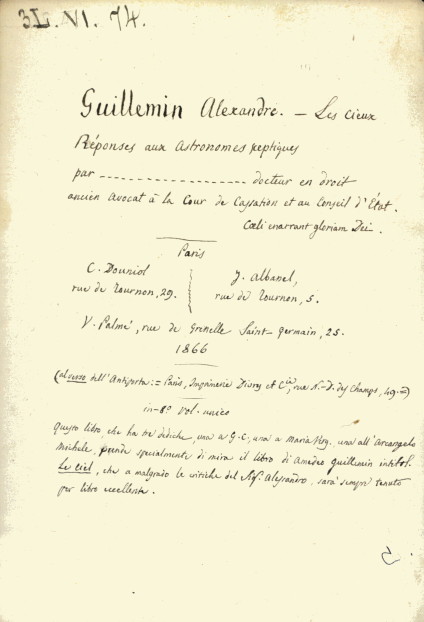 3L. VI. 74.
Guillemin Alexandre. — Les Cieux
Réponses aux Astronomes sceptiques
par -------------------- docteur en droit
ancien Avocat à la Cour de Cassation et au Conseil d'État.
Cœli enarrant gloriam Dei.
Paris
C. Douniol
rue de Tournon, 29.
J. Albanel,
rue de Tournon, 5.
V. Palmé, rue de Grenelle Saint-Germain, 25.
1866
(al verso dell'Antiporta := Paris, Imprimerie Divry et Cie, rue N.-D. des Champs, 49.=)
in-8° vol. unico
Questo libro che ha tre dediche, una a G. C., una a Maria Verg. una all'Arcangelo
Michele, prende specialmente di mira il libro di Amedeo Guillemin intitol.
Le Ciel, che a malgrado le critiche del Sig. Alessandro, sarà sempre tenuto
per libro eccellente.